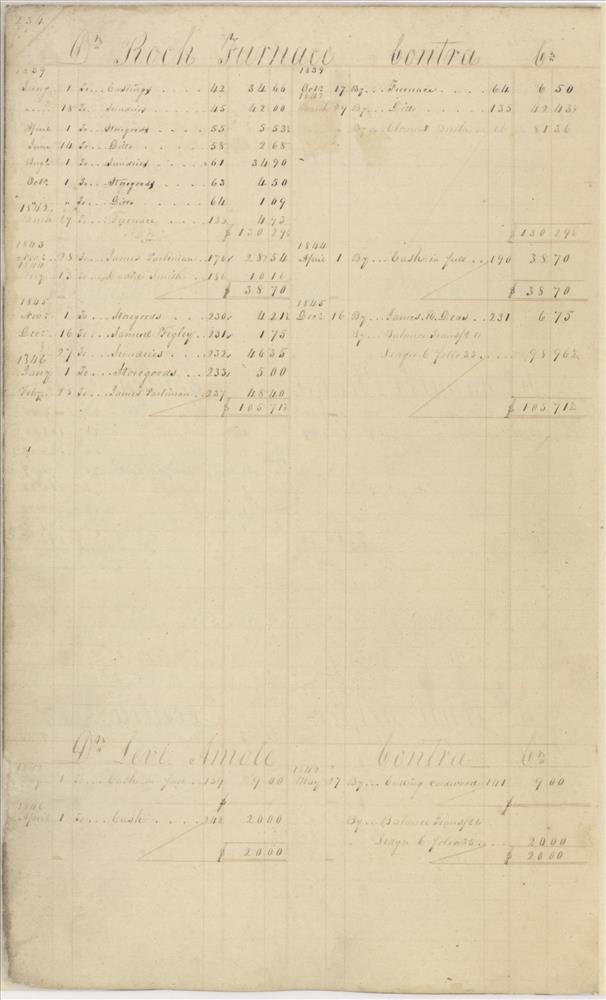 234
Dr Roch Furnace Contra Cr
1839 1839
Jany 1 To .. Castings .... 42 34 66 Octr 17 By ... Furnace .... 64 6 50
18 To .. Sundries .... 45 42 00 29 By ... Ditto .... 135 42 43½
April 1 To ... Storegoods .... 55 5 53½ By 81 36
June 14 To ... Ditto .... 58 2 68
Augt 1 To ... Sundries .... 61 34 90
Octr 1 To ... Storegoods .... 63 4 50
" " To ... Ditto .... 64 1 09
1842
29 To ... Furnace .... 135 4 93
$ 130 29½ $ 130 29½
1843 1844
28 To ... James Parlinian .. 176 28 54 April 1 By ... Cash in full ... 190 38 70
13 To ... Smith .. 186 10 16
$ 38 70 $ 38 70
1845 1845
Novr 1 To ... Storegoods .... 230 4 21½ Decr 16 By ... James H. Deas .. 231 6 75
Decr 16 To ... Samuel Bigley .. 231 1 75 By ... Balance Transf to
27 To ... Sundries .... 232 46 35 Ledger C folio 35 .... 98 96½
1846
Jany 1 To ... Storegoods ... 233 5 00
Feby 23 To ... James Parlinian .. 237 48 40
$ 105 71½ $ 105 71½
Dr Levi Amole Contra Cr
1 To ... Cash in full .. 139 9 00 May 27 By ... Cutting Cordwood 141 9 00
$ $
1846
April 1 To ... Cash ..... 242 20 00 By ... Balance Transf to
Ledger C folio 35 .... 20 00
$ 20 00 $ 20 00